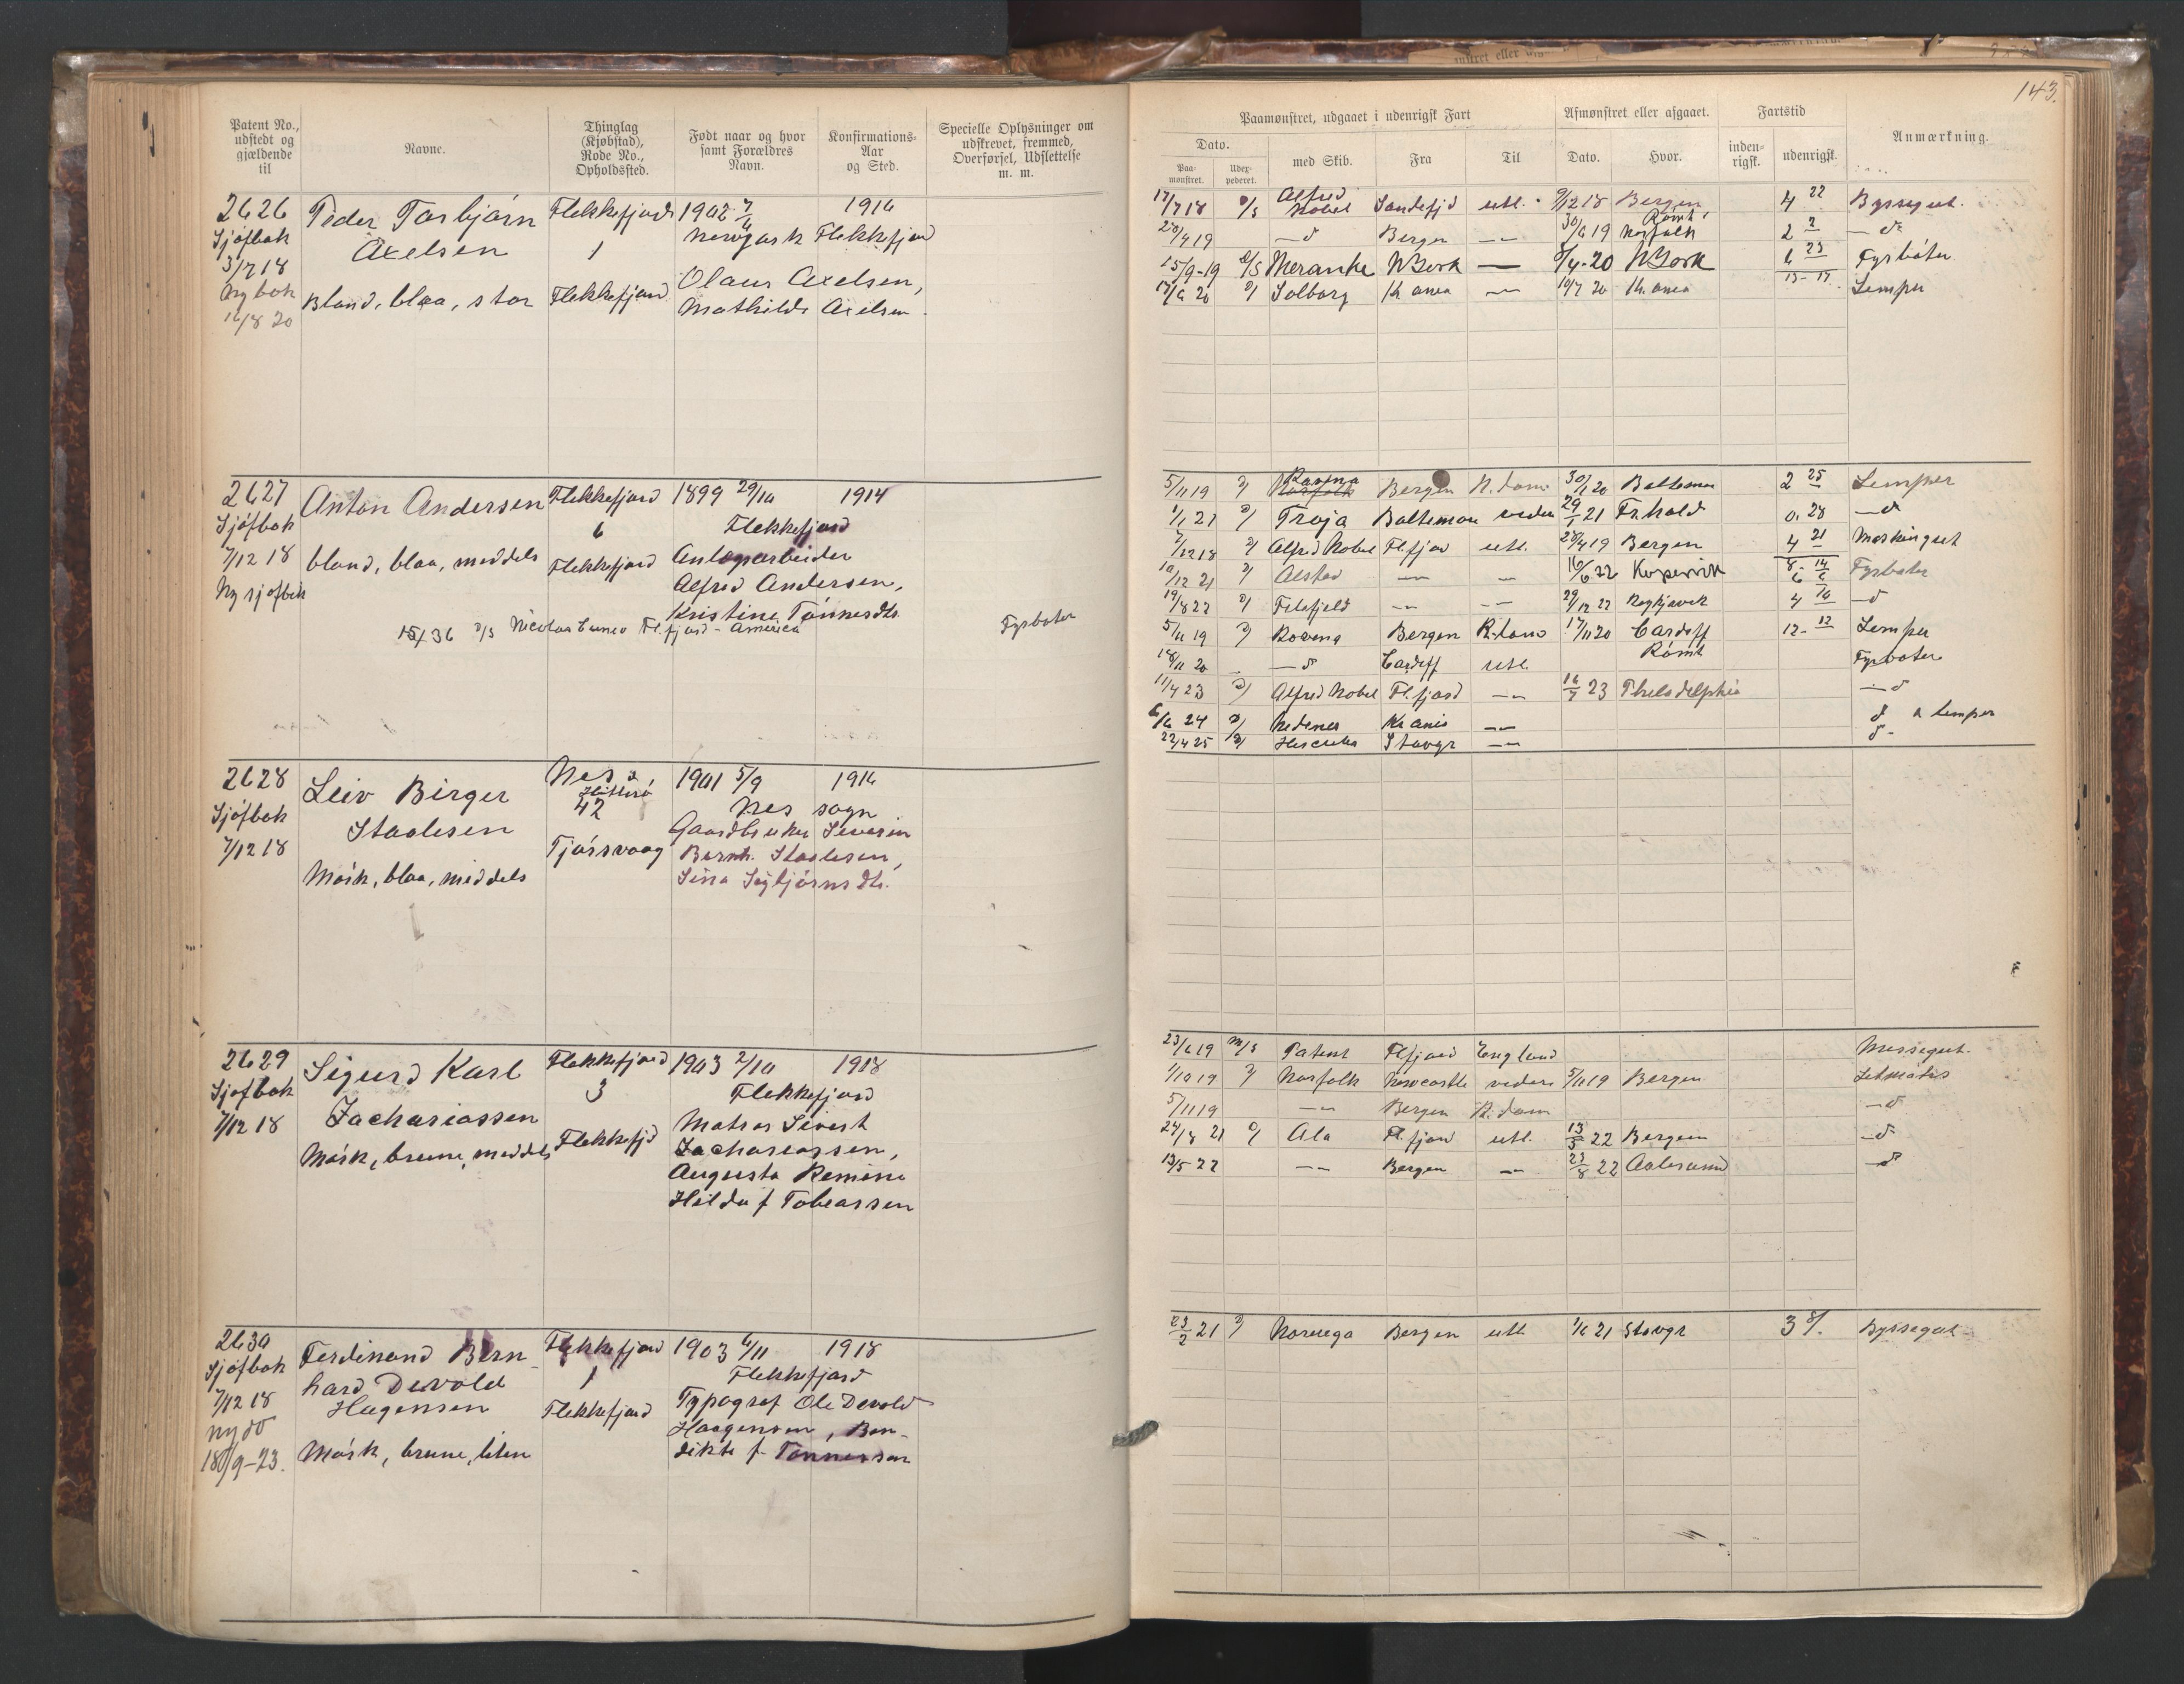 143.
Patent No., udstedt og gjældende til
Navne.
Thinglag (Kjøbstad), Rode No., Opholdssted.
Født naar og hvor samt Forældres Navn.
Konfirmations-Aar og Sted.
Specielle Oplysninger om udskrevet, fremmed, Overførsel, Udslettelse m. m.
Paamønstret, udgaaet i udenrigsk Fart
Afmønstret eller afgaaet.
Fartstid
Anmærkning.
Dato.
Paa-mønstret.
Udex-pederet.
med Skib.
Fra
Til
Dato.
Hvor.
inden-rigsk.
udenrigsk.
2626 Peder Torbjørn Flekkefjord 1902 1916
Sjøfbok Axelsen 1 Flekkefjord
3/7 18
Ny bok Blond, blaa, stor Flekkefjord Olaus Axelsen,
16/8 20 Mathilde Axelsen.
17/7 18 Alfred Nobel Sandefjd utl. 9/12 18 Bergen 4 22 Byssegut.
— d Bergen — 30/6 19 Norfolk Rømt 2 2 — d
15/9-19 Meranke N York — 9/4-20 N York 6 23 Fyrbøter
17/6 20 Solborg Kr.ania — 10/7 20 Kr.ania 13-17 Lemper
2627 Anton Andersen Flekkefjord 1899 29/10 1914
Sjøfbok 6 Flekkefjord
7/12 18 blond, blaa, middels Flekkefjord Anlegsarbeider
Ny sjøfbok Alfred Andersen,
Kristine Tønnesdtr.
15/ 36 Fl.fjord - America Fyrbøter
5/11 19 Rowena Norfolk Bergen R.dam 30/1 20 Baltimor 2 25 Lemper
1/1 21 Troja Baltimore videre 29/1 21 Fr.hald 0. 28 — d
7/12 18 Alfred Nobel Fl.fjord utl. 28/4 19 Bergen 4 21 Maskingut
10/12 21 Alstad — — 16/6 22 Kopervik 8-14 6 6 Fyrbøter
19/8 22 Filefjeld — — 29/12 22 Reykjavik 4 10 — d
5/11 19 Rowena Bergen R.dam 17/11 20 Cardiff 12- 12 Lemper
18/11 20 — d Cardiff utl. Rømt Fyrbøter
11/4 23 Alfred Nobel Fl.fjord — 16/7 23 Philadelphia — d
6/6 24 Nedenes Kr.ania — d & lemper
22/4 25 Stavgr — d -
2628 Leiv Birger Nes & Hitterø 1901 5/9 1916
Sjøfbok Staalesen 42 Nes sogn
7/12 18 Tjørsvaag Gaardbruker Severin
Mørk, blaa, middels Bernh. Staalesen,
Sina Sigbjørnsdtr.
2629 Sigurd Karl Flekkefjord 1903 2/10 1918
Sjøfbok Zachariassen 3 Flekkefjord
7/12 18 Mørk, brune, middels Flekkefjd Matros Sivert
Zachariassen,
Augusta Remine
Hilda f Tobiassen
23/6 19 m/s Patent Flfjord England Messegut.
1/10 19 Norfolk Newcastle videre 5/11 19 Bergen Letmatros
5/11 19 — Bergen R.dam — d
24/8 21 Ala Fl.fjord utl. 13/5 22 Bergen — d
13/5 22 — Bergen — 23/8 22 Aalesund — d
2630 Ferdinand Bern- Flekkefjord 1903 6/11 1918
Sjøfbok hard Devold 1 Flekkefjord
7/12 18 Hagensen Flekkefjord Typograf Ole Devold
ny do Haagensen, Ben-
18/9-23. Mørk, brune, liten dikte f. Tønnessen
23/2 21 Noruega Bergen utl 1/6 21 Stavgr 3 8/. Byssegut